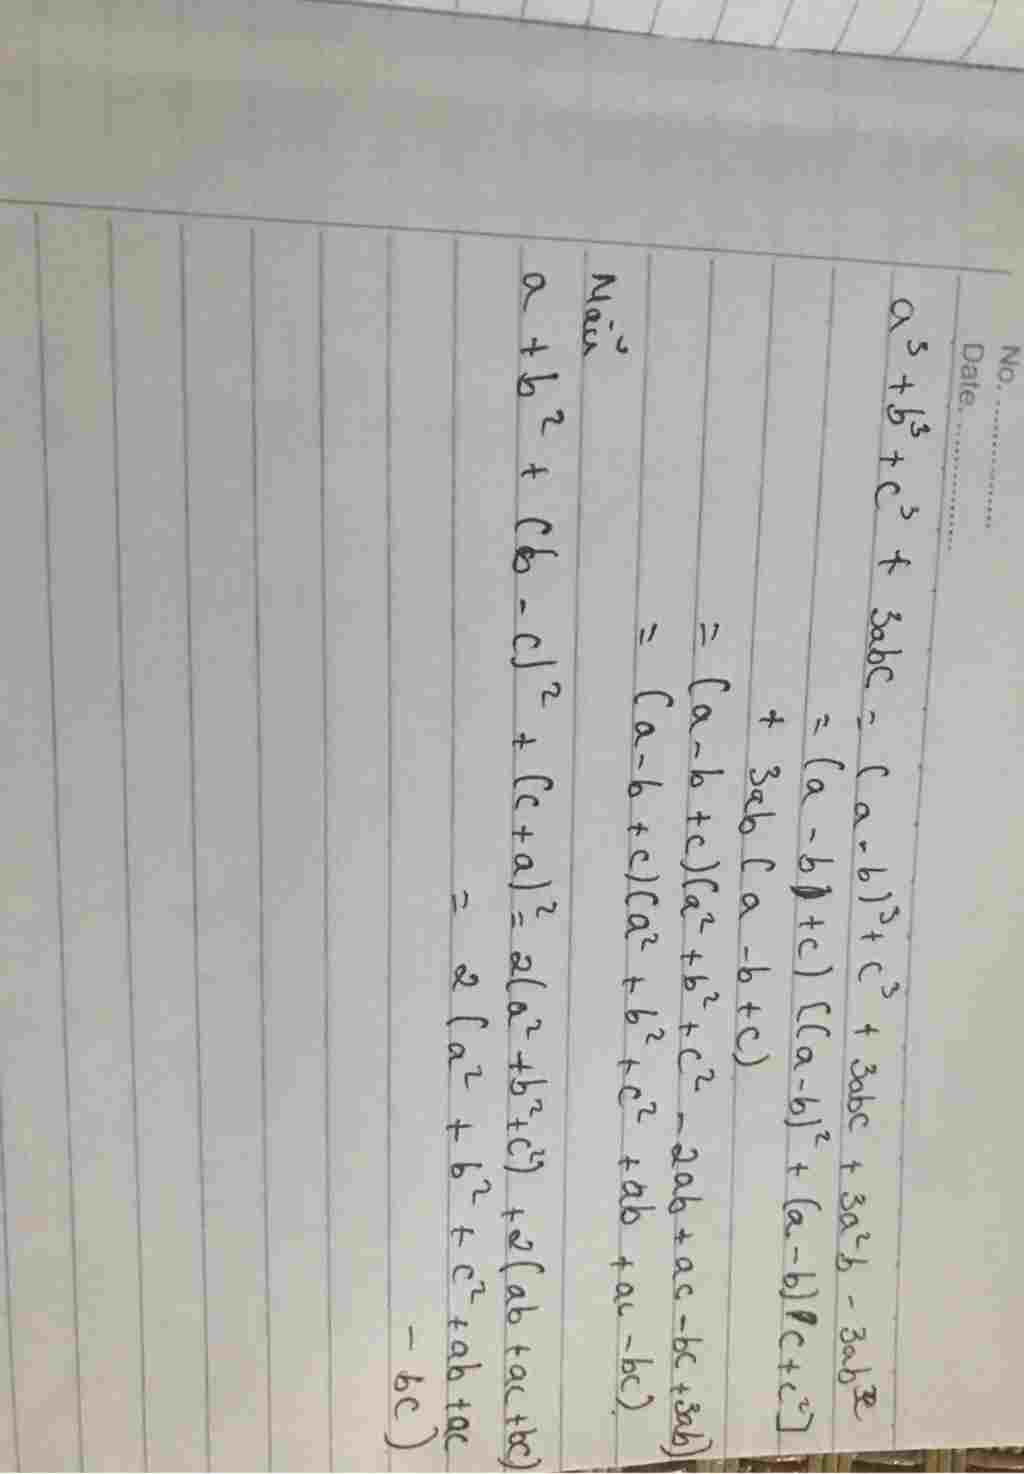 No. ...............
Date. ...............
a³ + b³ + c³ + 3abc = (a - b)³ + c³ + 3abc + 3a²b - 3ab²
= (a - b + c) ((a - b)² + (a - b) c + c²]
+ 3ab (a - b + c)
= (a - b + c)(a² + b² + c² - 2ab + ac - bc + 3ab)
= (a - b + c)(a² + b² + c² + ab + ac - bc)
Mẫu
a + b² + (b - c)² + (c + a)² = 2(a² + b² + c²) + 2(ab + ac + bc)
= 2(a² + b² + c² + ab + ac
- bc)